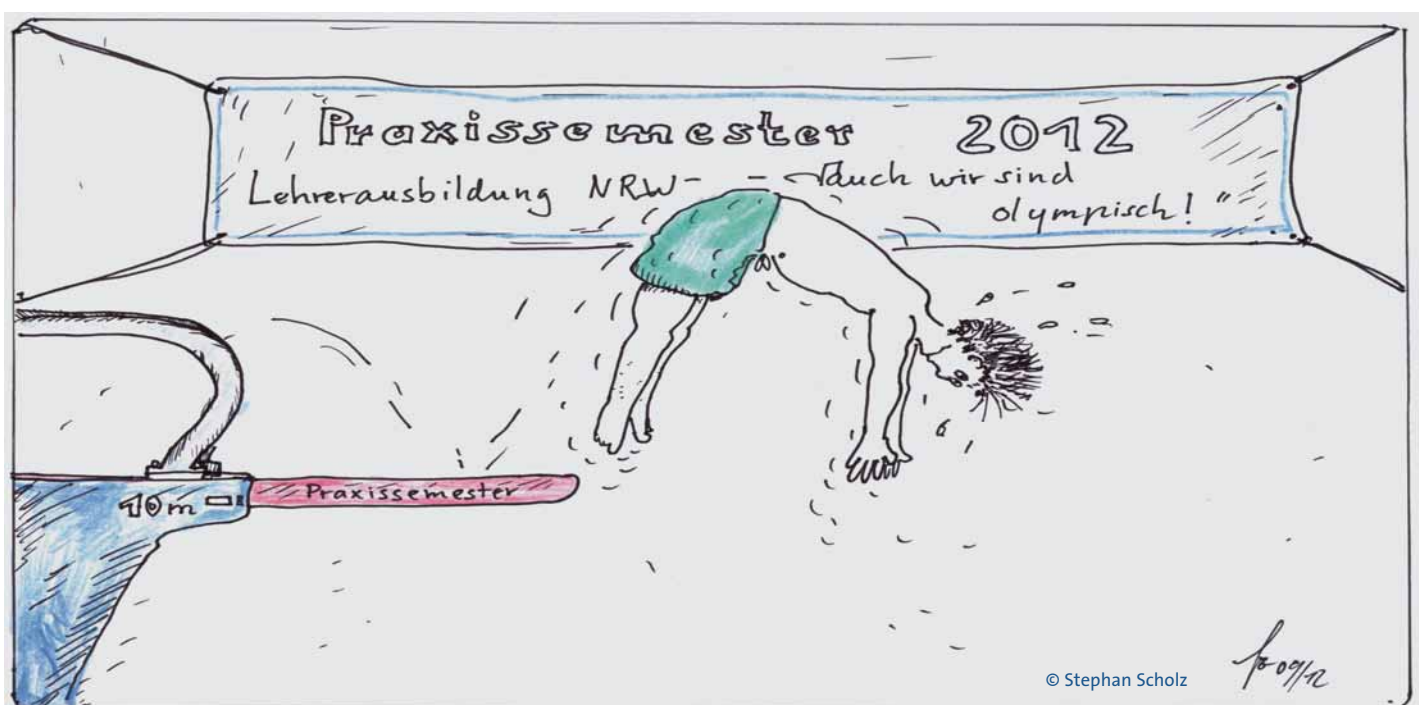 Praxissemester 2012
Lehrerausbildung NRW - - "auch wir sind
olympisch!"
Praxissemester
10m
© Stephan Scholz
09/12